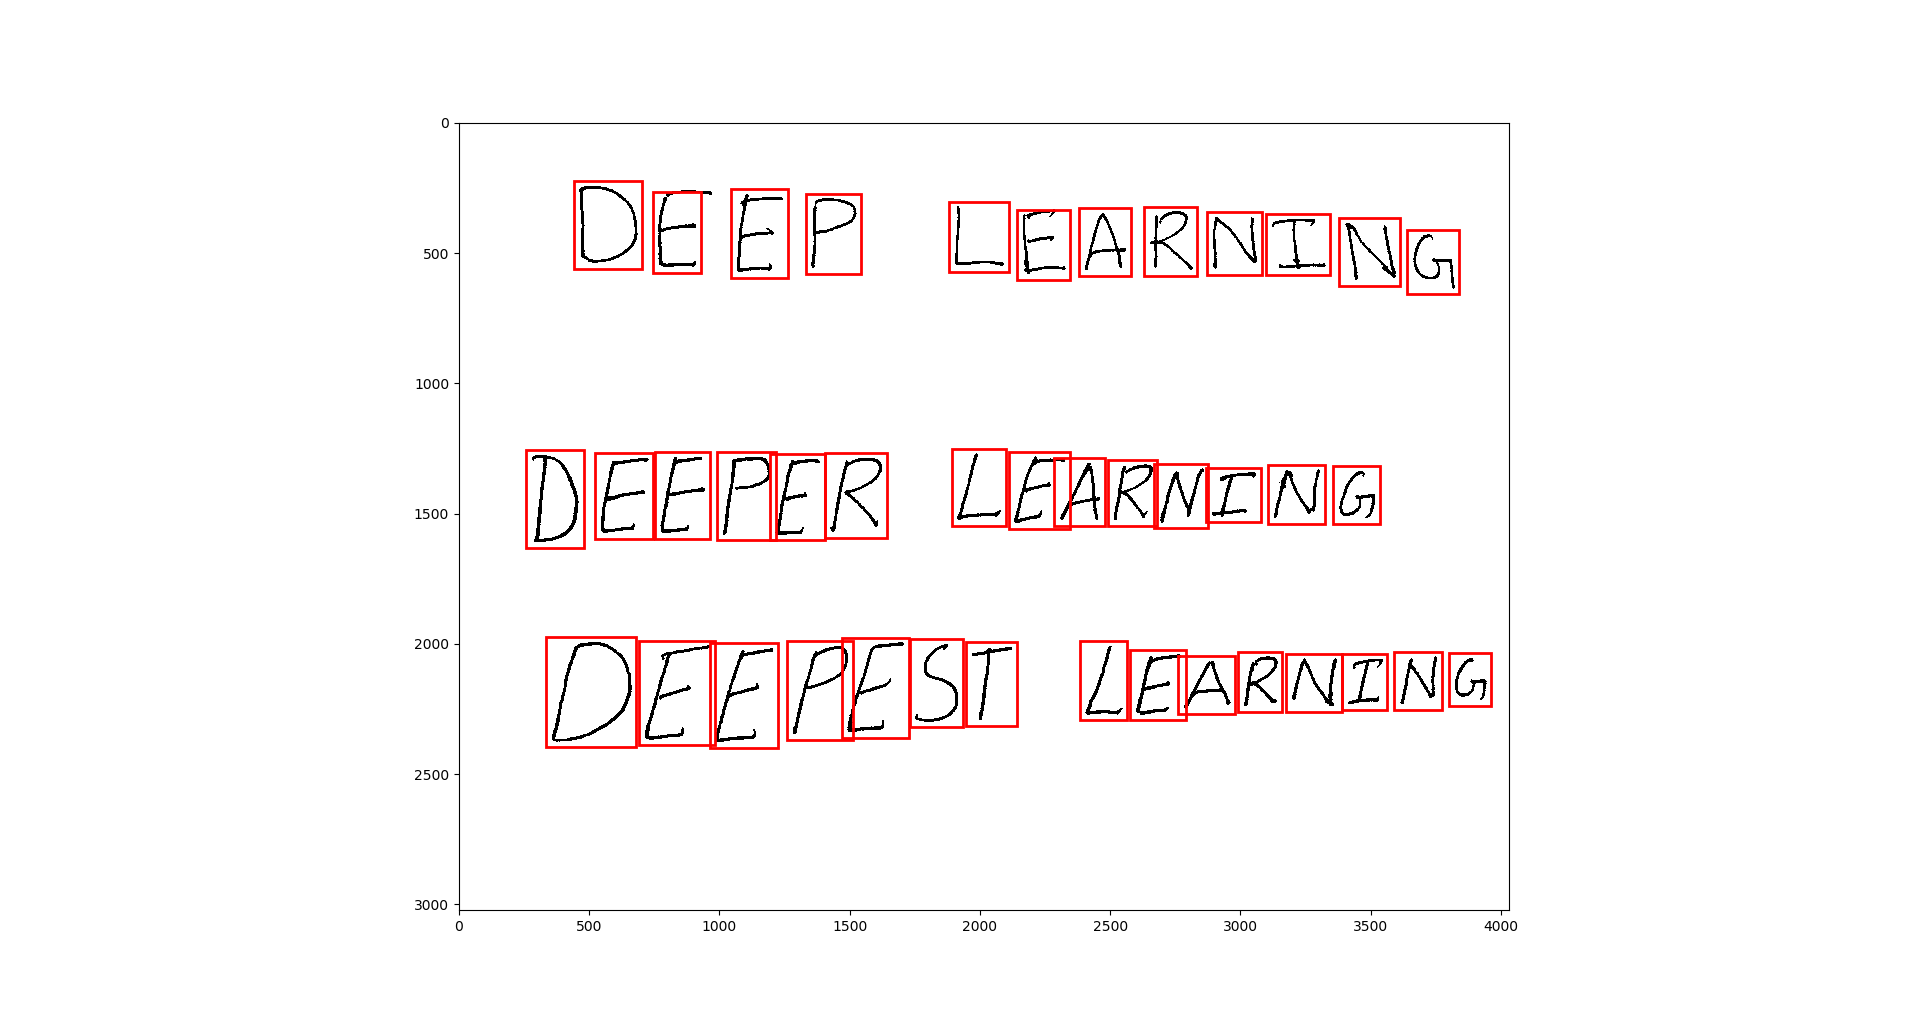 0
500
1000
1500
2000
2500
3000
DEEP LEARNING
DEEPER LEARNING
DEEPEST LEARNING
0 500 1000 1500 2000 2500 3000 3500 4000